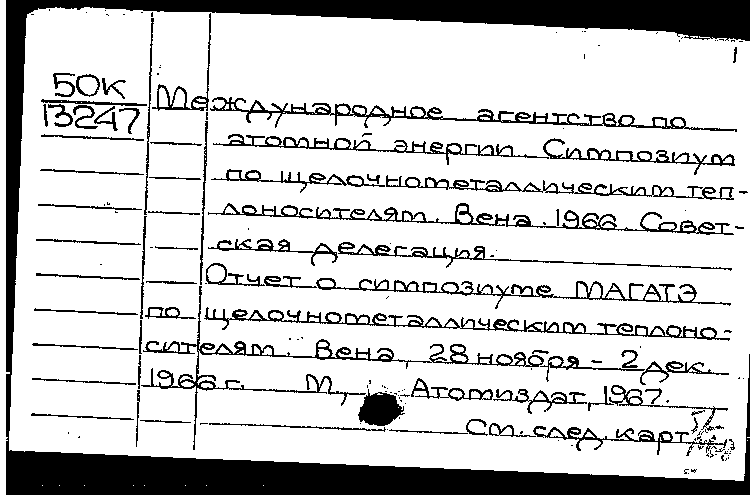 50К
13247
Международное агентство по
атомной энергии. Симпозиум
по щелочнометаллическим теп-
лоносителям. Вена. 1966. Совет-
ская делегация.
Отчет о симпозиуме МАГАТЭ
по щелочнометаллическим теплоно-
сителям. Вена, 28 ноября - 2 дек.
1966 г. М., Атомиздат, 1967.
См. след. карт